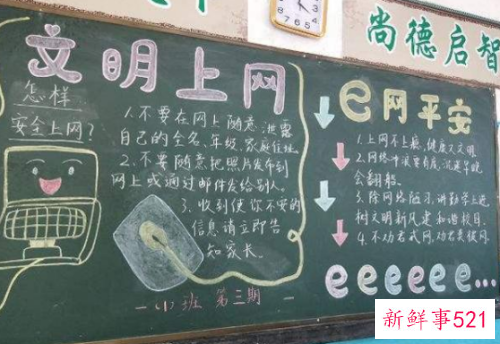 尚德启智
文明上网
怎样
安全上网?
1.不要在网上随意泄露
自己的全名、年级、家庭住址.
2.不要随意把照片发布到
网上或通过邮件发给别人.
3.收到使你不要的
信息,请立即告
知家长.
班 第三期
e网平安
1.上网不上瘾,健康又文明
2.网络冲浪要有度,沉迷早晚
会翻船.
3.除网络陋习,讲勤学上进
树文明新风建和谐校园.
4.不
eeeeee...
新鲜事521